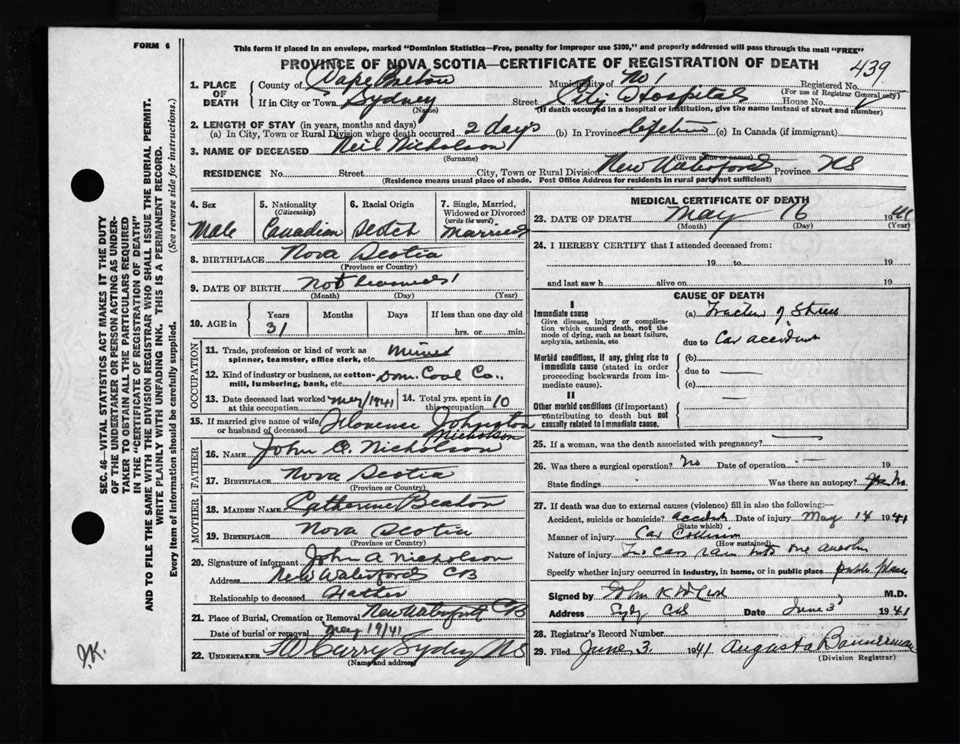 FORM 6
This form if placed in an envelope, marked "Dominion Statistics—Free, penalty for improper use $300," and properly addressed will pass through the mail "FREE"
PROVINCE OF NOVA SCOTIA—CERTIFICATE OF REGISTRATION OF DEATH
439
1. PLACE OF DEATH
County of Cape Breton Municipality of No 1 Registered No.
(For use of Registrar General only)
If in City or Town Sydney Street City Hospital House No.
(Name) (If death occurred in a hospital or institution, give the name instead of street and number)
2. LENGTH OF STAY (in years, months and days)
(a) In City, Town or Rural Division where death occurred 2 days (b) In Province lifetime (c) In Canada (if immigrant)
3. NAME OF DECEASED Neil Nicholson
(Surname) (Given name or names)
RESIDENCE No. Street City, Town or Rural Division New Waterford Province NS
(Residence means usual place of abode. Post Office Address for residents in rural part not sufficient)
4. Sex
Male
5. Nationality
(Citizenship)
Canadian
6. Racial Origin
Scotch
7. Single, Married, Widowed or Divorced
(write the word)
Married
8. BIRTHPLACE Nova Scotia
(Province or Country)
9. DATE OF BIRTH Not
(Month) (Day) (Year)
10. AGE in
Years Months Days If less than one day
31 hrs. or min.
OCCUPATION
11. Trade, profession or kind of work as spinner, teamster, office clerk, etc. Miner
12. Kind of industry or business, as cotton-mill, lumbering, bank, etc. Dom. Coal Co.,
13. Date deceased last worked at this occupation May/1941
14. Total yrs. spent in this occupation 10
15. If married give name of wife or husband of deceased Florence Johnston
Nicholson
FATHER
16. NAME John A. Nicholson
17. BIRTHPLACE Nova Scotia
(Province or Country)
MOTHER
18. MAIDEN NAME Catherine Beaton
19. BIRTHPLACE Nova Scotia
(Province or Country)
20. Signature of informant John A Nicholson
Address New Waterford CB
Relationship to deceased Father
21. Place of Burial, Cremation or Removal New Waterford CB
Date of burial or removal May 19/41
22. UNDERTAKER Curry Sydney NS
(Name and address)
MEDICAL CERTIFICATE OF DEATH
23. DATE OF DEATH May 16 1941
(Month) (Day) (Year)
24. I HEREBY CERTIFY that I attended deceased from:
19 to 19
and last saw h alive on 19
CAUSE OF DEATH
I
Immediate cause
Give disease, injury or complication which caused death, not the mode of dying, such as heart failure, asphyxia, asthenia, etc
(a) Fracture of
due to Car accident
Morbid conditions, if any, giving rise to immediate cause (stated in order proceeding backwards from immediate cause).
(b)
due to
(c)
II
Other morbid conditions (if important) contributing to death but not causally related to immediate cause.
25. If a woman, was the death associated with pregnancy?
26. Was there a surgical operation? No Date of operation 19
State findings Was there an autopsy? No
27. If death was due to external causes (violence) fill in also the following:—
Accident, suicide or homicide? accident Date of injury May 14 1941
(State which)
Manner of injury Car Collision
(How sustained)
Nature of injury Two cars ran into one another
Specify whether injury occurred in industry, in home, or in public place public place
Signed by John K M.D.
Address Date June 3 1941
28. Registrar's Record Number
29. Filed June 3. 1941 Augusta Bannerman
(Division Registrar)
SEC. 46—VITAL STATISTICS ACT MAKES IT THE DUTY
OF THE UNDERTAKER OR PERSON ACTING AS UNDER-
TAKER TO OBTAIN ALL THE PARTICULARS REQUIRED
IN THE "CERTIFICATE OF REGISTRATION OF DEATH"
AND TO FILE THE SAME WITH THE DIVISION REGISTRAR WHO SHALL ISSUE THE BURIAL PERMIT.
WRITE PLAINLY WITH UNFADING INK. THIS IS A PERMANENT RECORD.
Every item of information should be carefully supplied. (See reverse side for instructions.)
J.K.